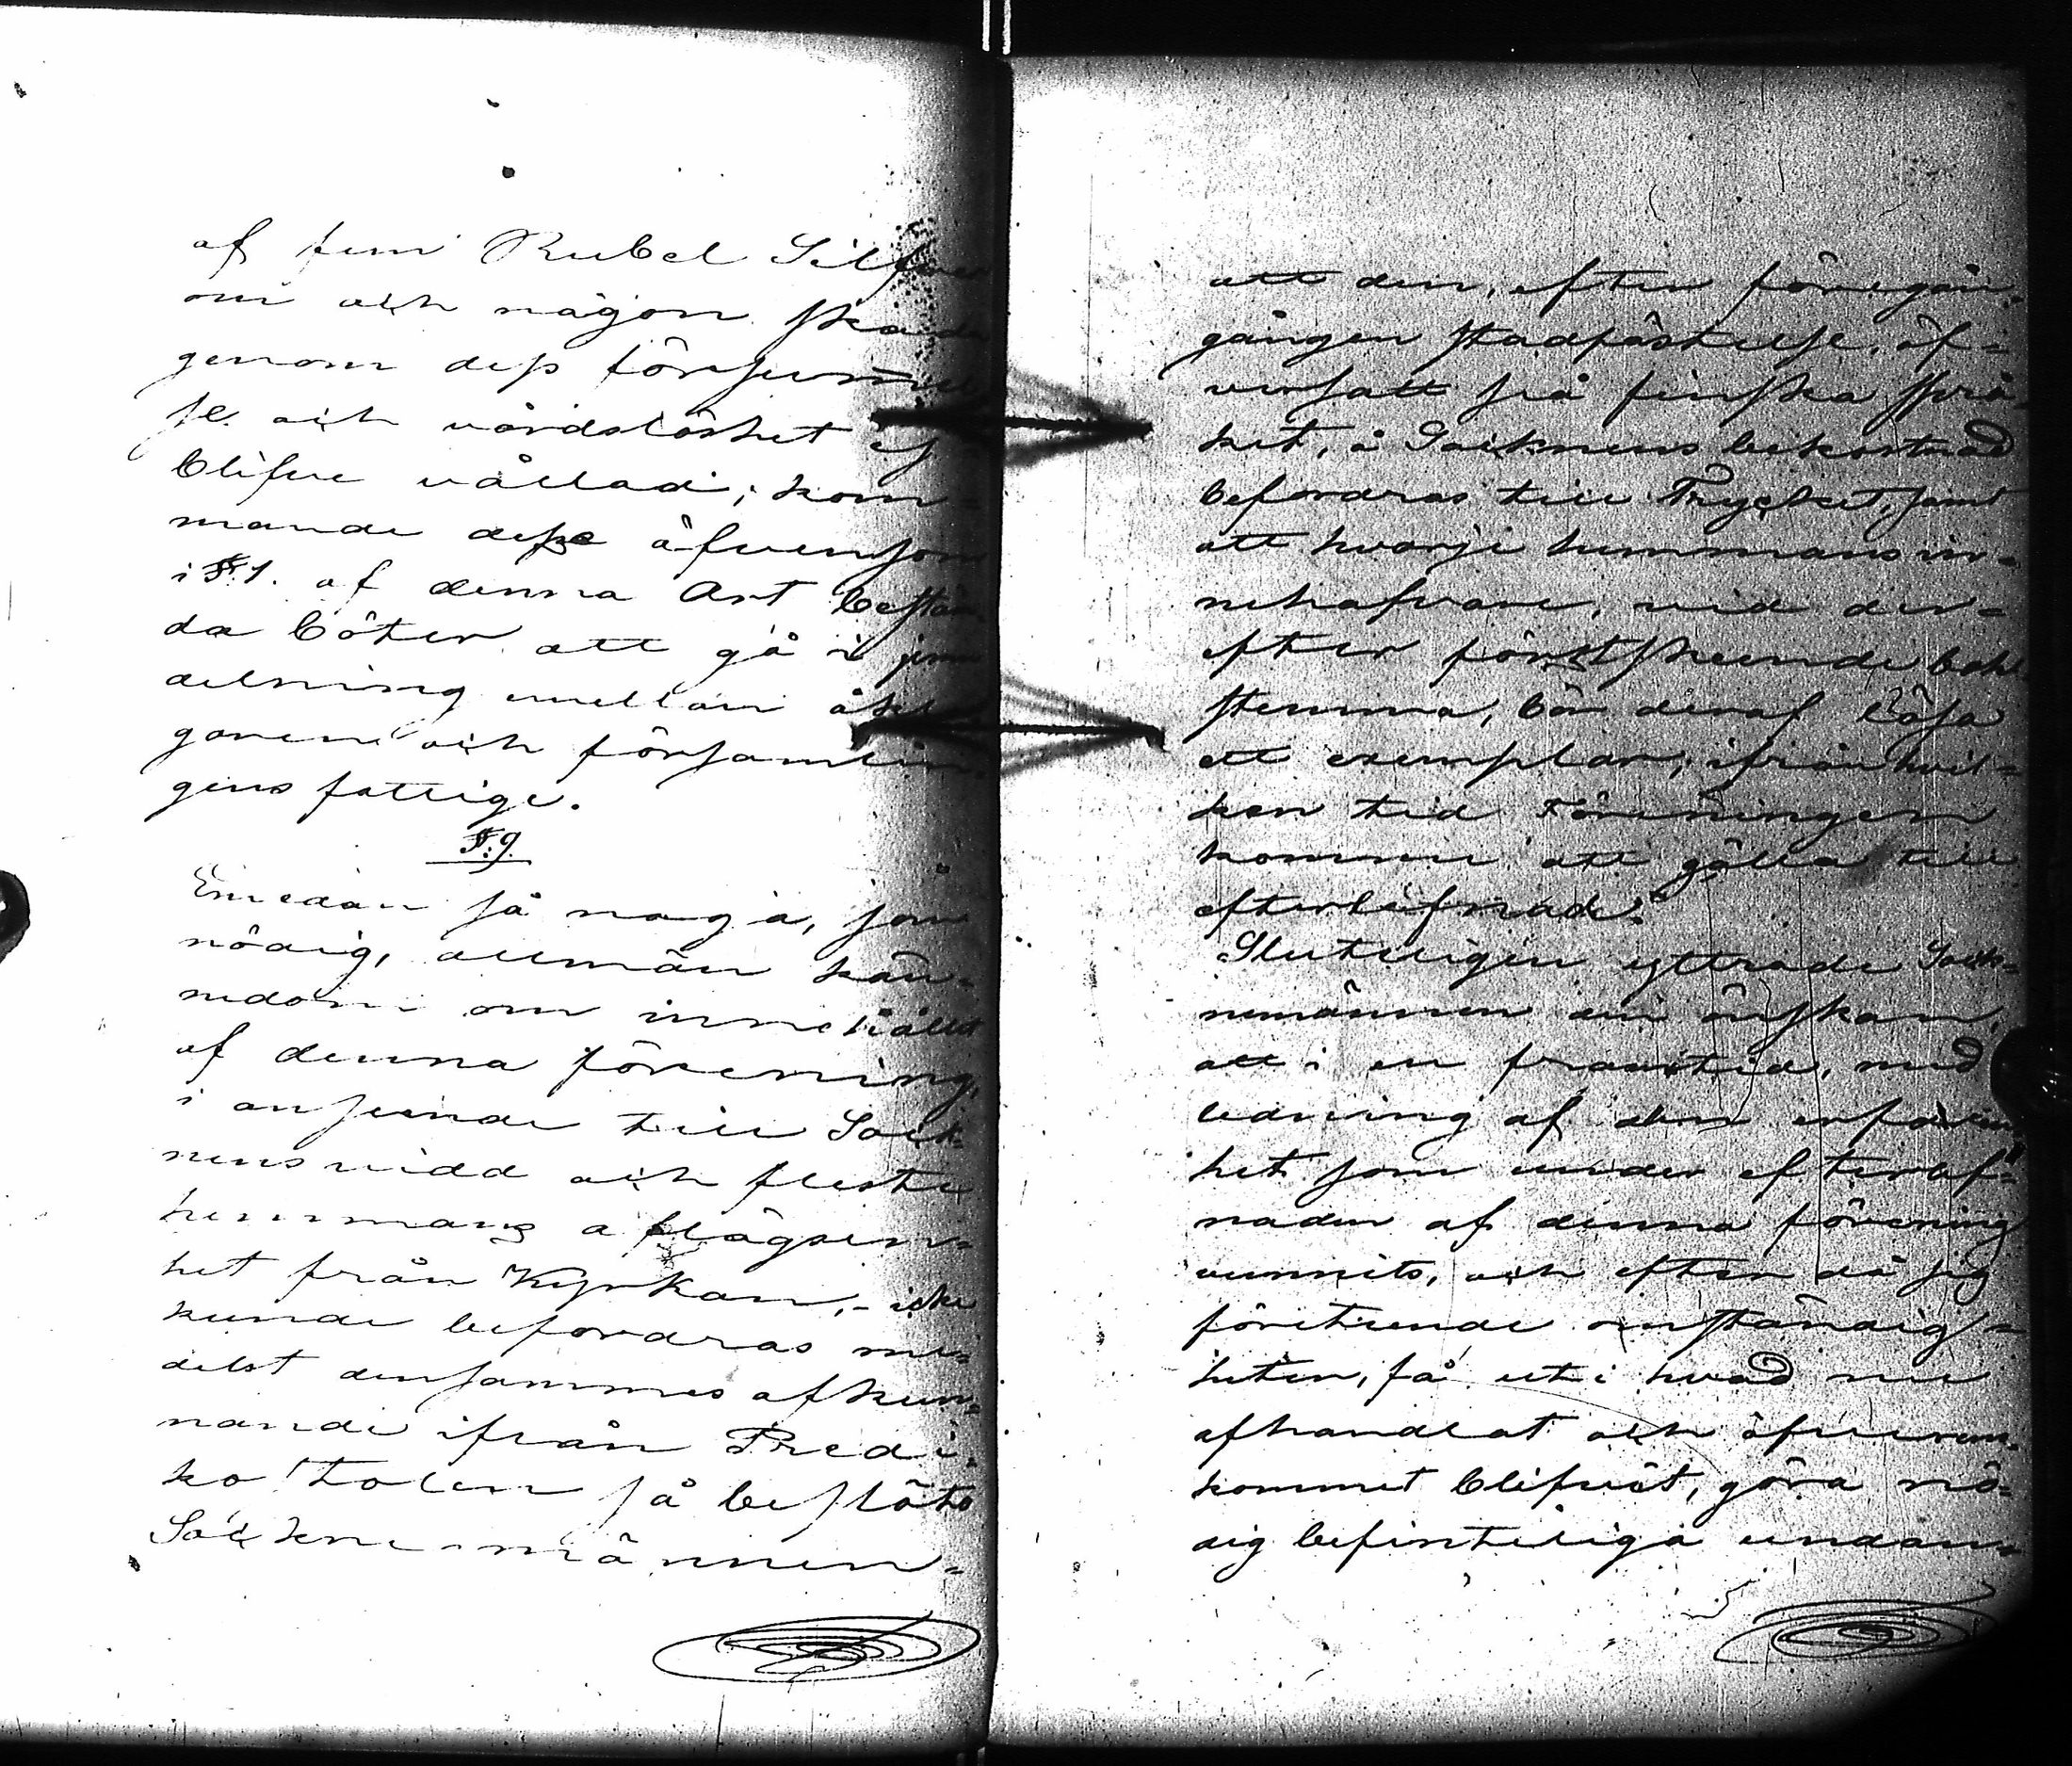 af fem Rubel Silfver
om ock någon skada
genom dess försummel
se och vårdslöshet ej
blifvit vållad; kom-
mande dessa äfvensom
i §.1. af denna Art bestäm
da böter att gå i jem
delning emellan åkla
garen och församlin-
gens fattige.
§.9.
Emedan så noga, som
nödig, allmän kän-
nedom om innehållet
af denna förening,
i anseende till Sock-
nens vidd och fleste
hemmans aflägsen-
het från Kyrkan, - icke
kunde befordras me-
delst densammes afkun-
nande ifrån Predi-
kostolen så beslöto
Sockne-männen-
att den, efter föregån-
gången stadfästelse, öf-
versatt på finska språ-
ket, å Socknens bekostnad
befordras till Trycket, samt
att hvarje hemmans in-
nehafvare, vid der-
efter först skeende
stemma, bör deraf lösa
ett exemplar; ifrån hvil-
ken tid Föreningen
kommer att gälla till
efterlefnad.
Slutligen yttrade Sock-
nemännen en önskan,
att i en framtid, med
ledning af den erfaren
het som under efterlef-
naden af denna förening
vunnits, och efter då sig
företeende omständig-
heter, få uti hvad nu
afhandlat och öfverens-
kommet blifvit, göra nö-
dig befinteliga undan-